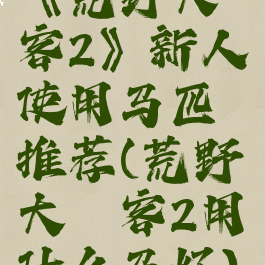 《荒野大
客2》新人
使用马匹
推荐(荒野
大 客2用
什么马好)